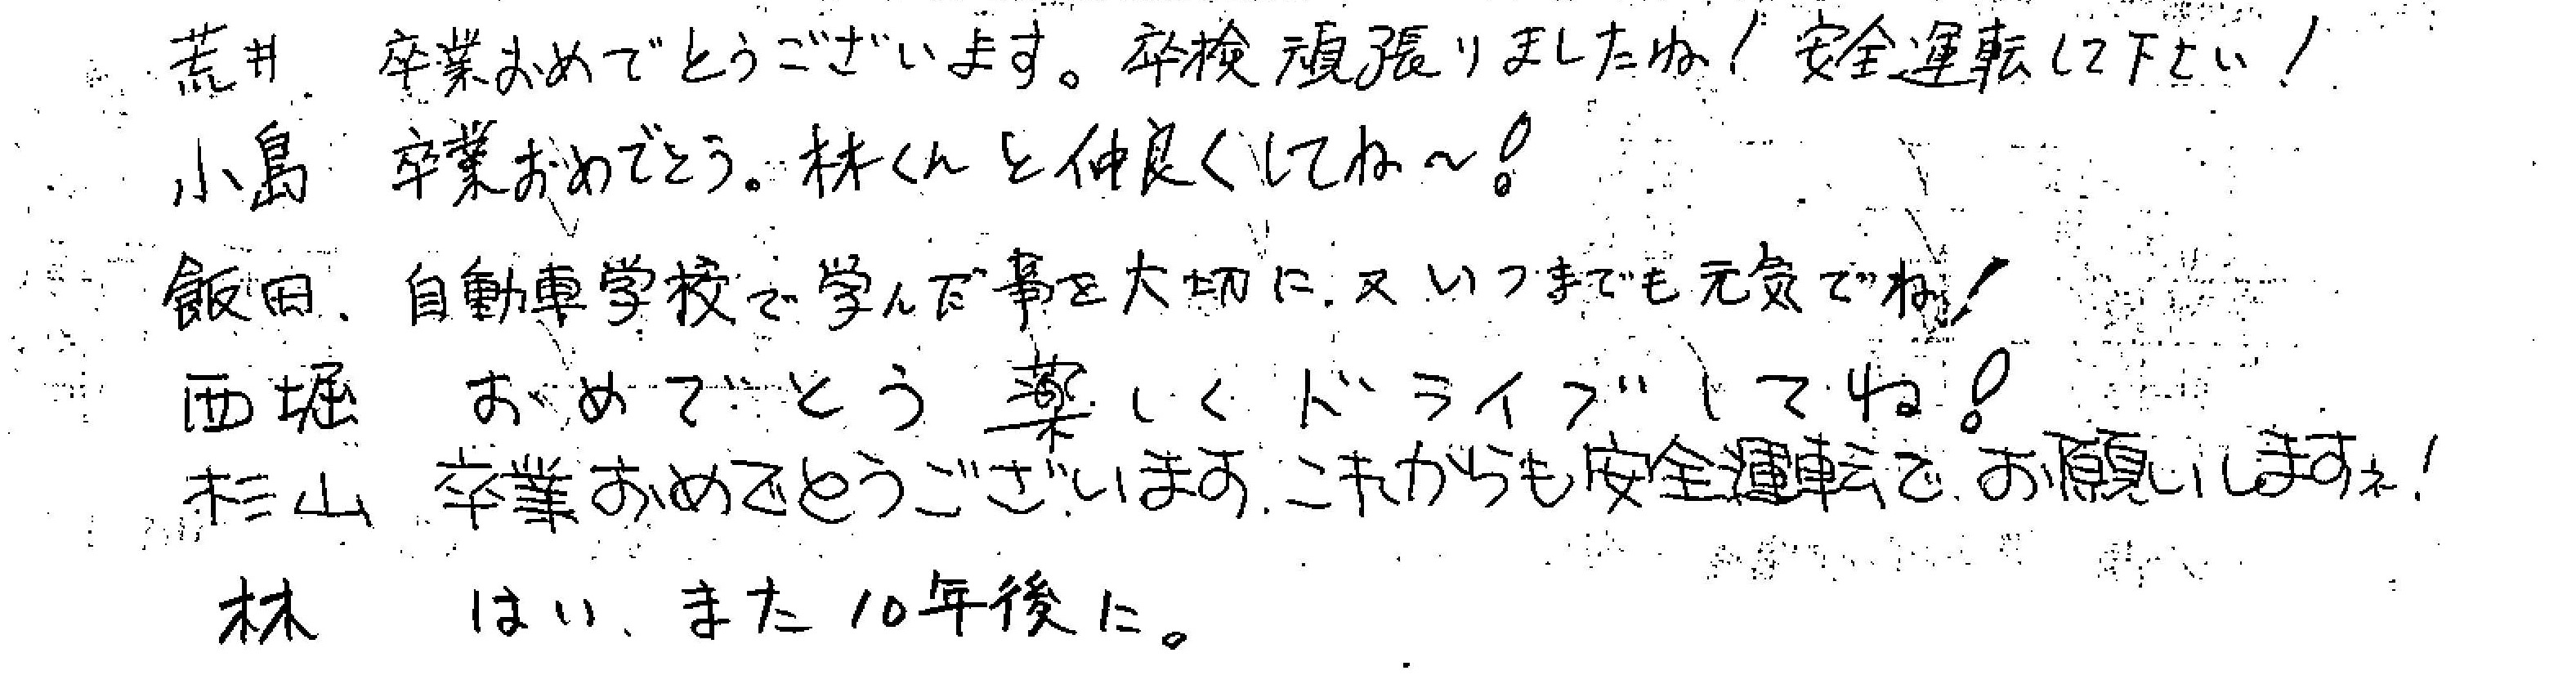 荒井 卒業おめでとうございます。卒検頑張りましたね！安全運転して下さい！
小島 卒業おめでとう。林くんと仲良くしてね～！
飯田、自動車学校で学んだ事を大切に、又いつまでも元気でね！
西堀 おめでとう 楽しくドライブしてね！
杉山 卒業おめでとうございます、これからも安全運転で、お願いしますネ！
林 はい、また10年後に。